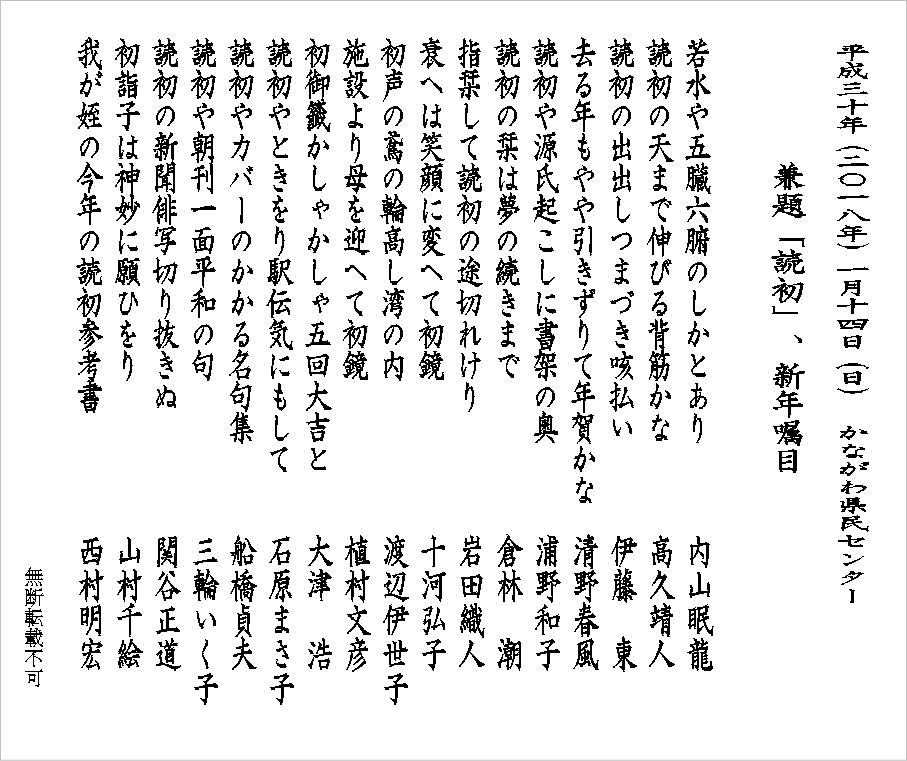 平成三十年（二〇一八年）一月十四日（日）　かながわ県民センター
兼題「読初」、新年嘱目
若水や五臓六腑のしかとあり　内山眠龍
読初の天まで伸びる背筋かな　高久靖人
読初の出出しつまづき咳払い　伊藤　東
去る年もやや引きずりて年賀かな　清野春風
読初や源氏起こしに書架の奥　浦野和子
読初の栞は夢の続きまで　倉林　潮
指栞して読初の途切れけり　岩田織人
衰へは笑顔に変へて初鏡　十河弘子
初声の鳶の輪高し湾の内　渡辺伊世子
施設より母を迎へて初鏡　植村文彦
初御籤かしゃかしゃ五回大吉と　大津　浩
読初やときをり駅伝気にもして　石原まさ子
読初やカバーのかかる名句集　船橋貞夫
読初や朝刊一面平和の句　三輪いく子
読初の新聞俳写切り抜きぬ　関谷正道
初詣子は神妙に願ひをり　山村千絵
我が姪の今年の読初参考書　西村明宏
無断転載不可